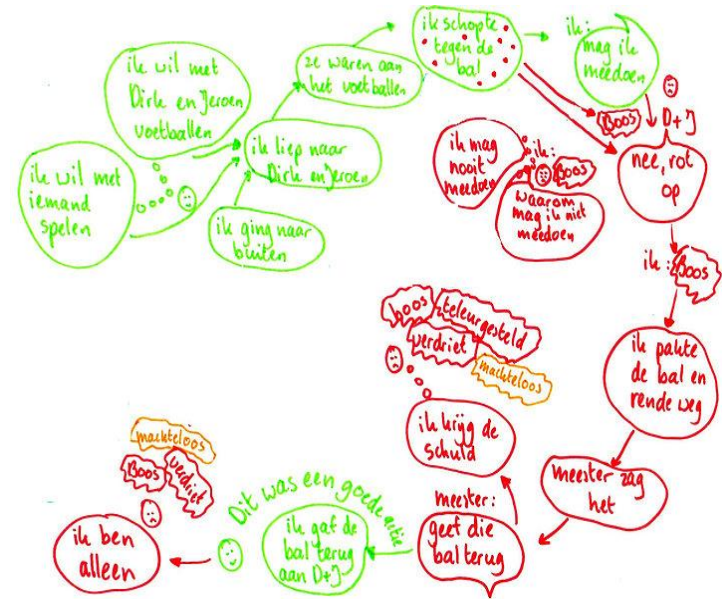 ik wil met
iemand
spelen
ik wil met
Dirk en Jeroen
voetballen
ik ging naar
buiten
ik liep naar
Dirk en Jeroen
ze waren aan
het voetballen
ik schopte
tegen de
bal
ik:
mag ik
meedoen
Boos
D+J
nee, rot
op
ik:
Boos
ik mag
nooit
meedoen
waarom
mag ik niet
meedoen
ik: Boos
ik pakte
de bal en
rende weg
meester zag
het
meester:
geef die
bal terug
ik krijg de
schuld
boos
teleurgesteld
verdriet
machteloos
Dit was een goede actie
ik gaf de
bal terug
aan D+J
ik ben
alleen
Boos
verdriet
machteloos